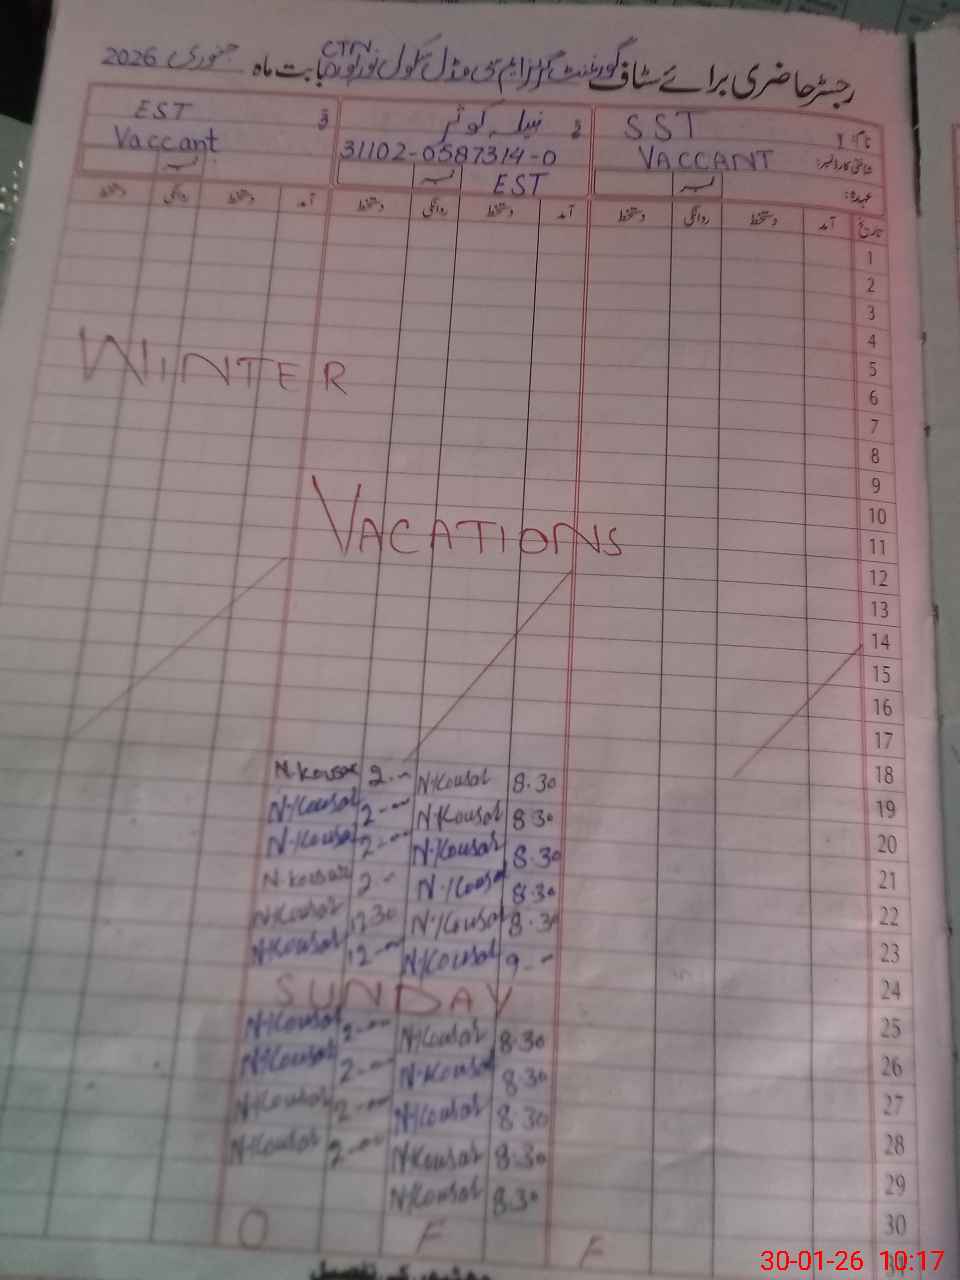 رجسٹر حاضری برائے سٹاف گورنمنٹ گرلز ایم سی مڈل سکول نورپورہ CTN بابت ماہ جنوری 2026
نام
SST
نبیلہ کوثر
EST
شناختی کارڈ نمبر:
VACCANT
31102-0587314-0
Vaccant
عہدہ:
EST
تاریخ آمد دستخط روانگی دستخط آمد دستخط روانگی دستخط آمد دستخط روانگی دستخط
1
2
3
4
5
WINTER
6
7
8
9
10
VACATIONS
11
12
13
14
15
16
17
18
8.30 N.Kousar 2.-- N.Kousar
19
8.30 N.Kousar 2.-- N.Kousar
20
8.30 N.Kousar 2.-- N.Kousar
21
8.30 N.Kousar 2.- N.Kousar
22
8.30 N.Kousar 12.30 N.Kousar
23
9.-- N.Kousar 12.-- N.Kousar
24
SUNDAY
25
8.30 N.Kousar 2.-- N.Kousar
26
8.30 N.Kousar 2.-- N.Kousar
27
8.30 N.Kousar 2.-- N.Kousar
28
8.30 N.Kousar 2.-- N.Kousar
29
8.30 N.Kousar
30
F F O
30-01-26 10:17